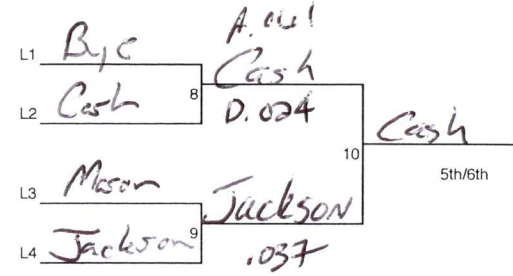 L1 Bye
L2 Cash
8
Cash
D.024
L3 Mason
L4 Jackson
9
Jackson
.037
10
Cash
5th/6th